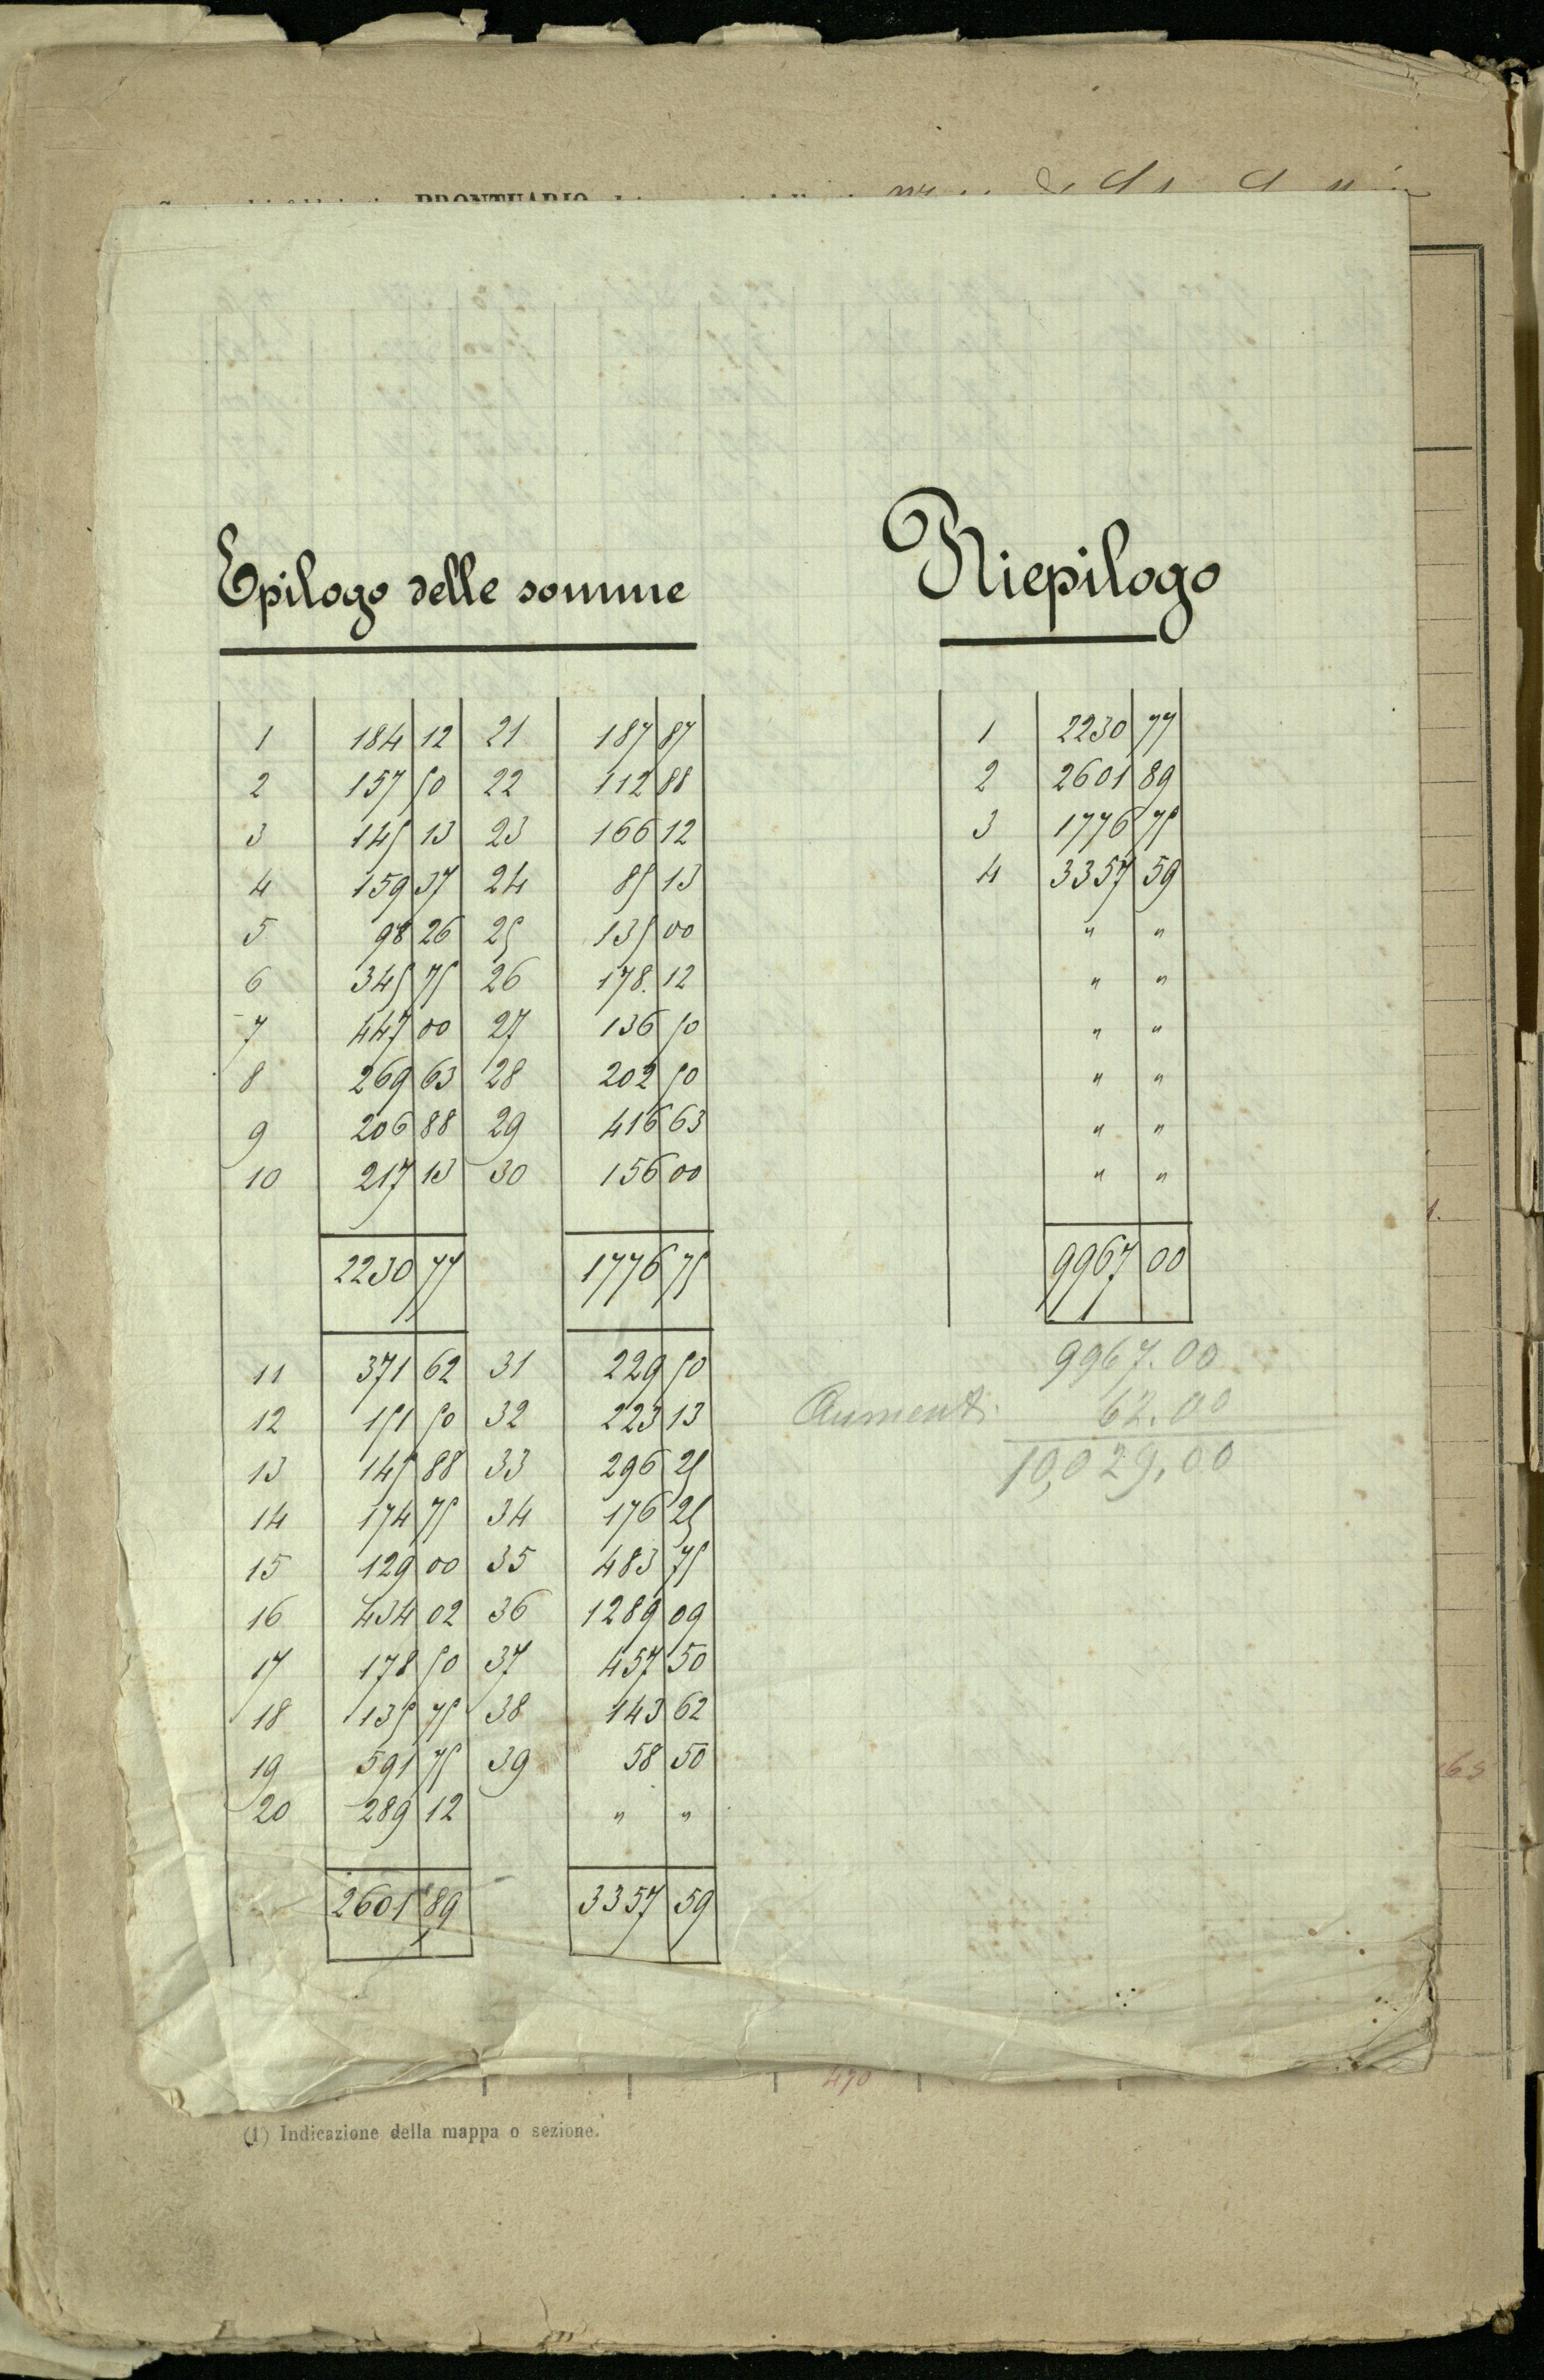 PRONTUARIO
Epilogo delle somme
Riepilogo
1 184 12 21 187 87
2 157 50 22 112 88
3 145 13 23 166 12
4 159 37 24 85 13
5 98 26 25 135 00
6 345 75 26 178. 12
7 447 00 27 136 50
8 269 63 28 202 50
9 206 88 29 416 63
10 217 13 30 156 00
2230 77 1776 75
11 371 62 31 229 50
12 151 50 32 223 13
13 145 88 33 296 25
14 174 75 34 176 25
15 129 00 35 483 75
16 434 02 36 1289 09
17 178 50 37 457 50
18 135 75 38 143 62
19 591 75 39 58 50
20 289 12 " "
2601 89 3357 59
1 2230 77
2 2601 89
3 1776 75
4 3357 59
" "
" "
" "
" "
" "
" "
9967 00
9967.00
Aument. 62.00
10,029,00
470
(1) Indicazione della mappa o sezione.